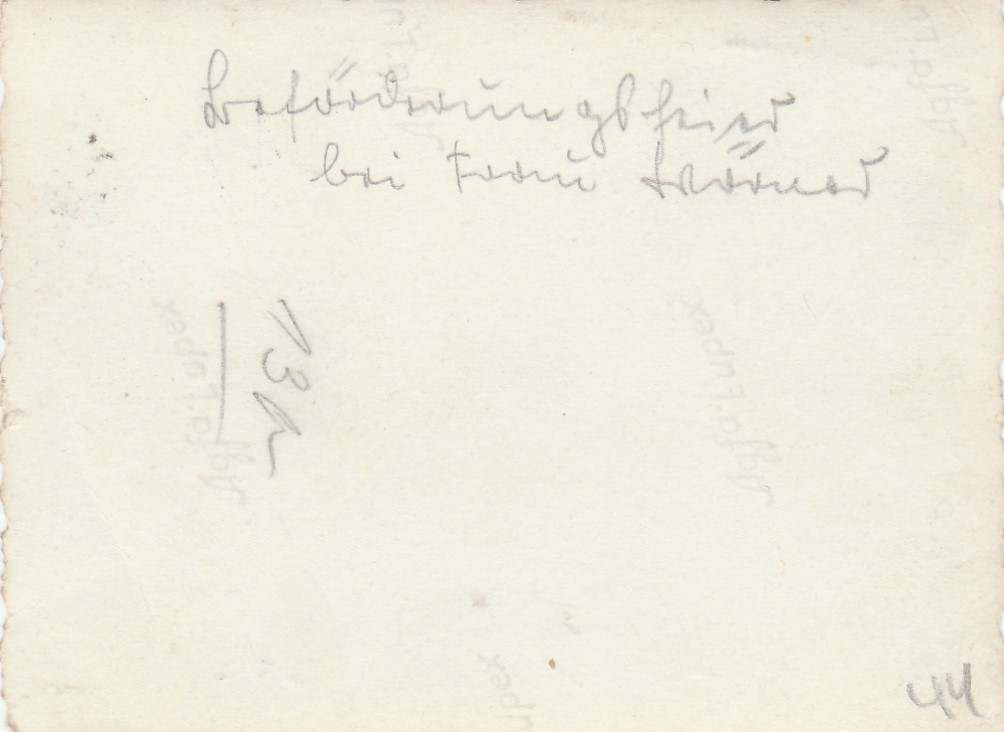 Beförderungsfeier
bei Frau Wörner
13 h
44
Agfa Lupex
Agfa Lupex
Agfa L
Lupex